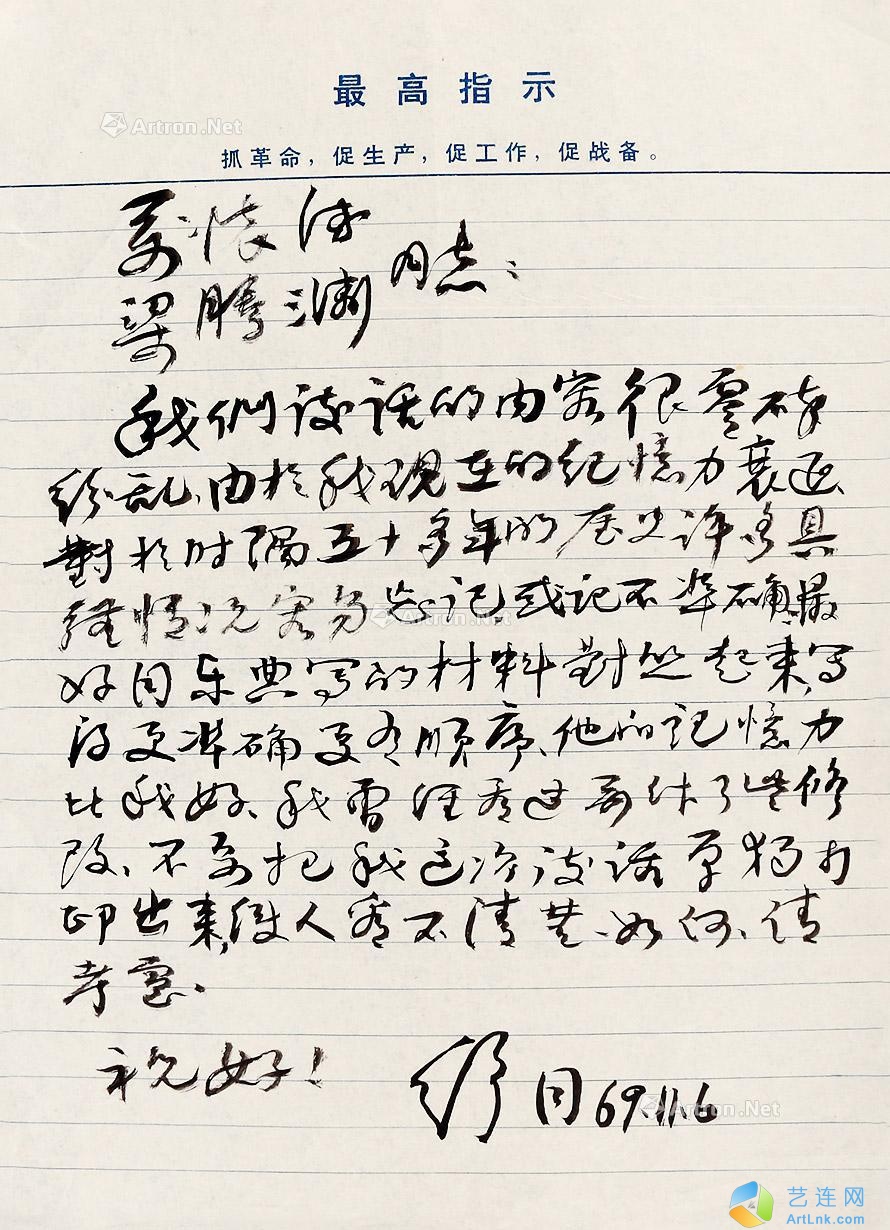 最高指示
抓革命，促生产，促工作，促战备。
Artron.Net
万懷德
梁腾渊 同志：
我们谈话的内容很零碎
纷乱、由於我现在的记憶力衰退
對於时隔五十多年的历史许多具
體情况容易忘记或记不准确、最
Artron.Net
好同乐典写的材料對照起来、写
得更准确更有顺序、他的记憶力
比我好、我曾经看过要作了些修
改、不要把我这次谈话单独打
印出来、使人看不清楚、如何、请
考虑、
祝好！
舒同 69.11.6
Artron.Net
艺连网
ArtLnk.com